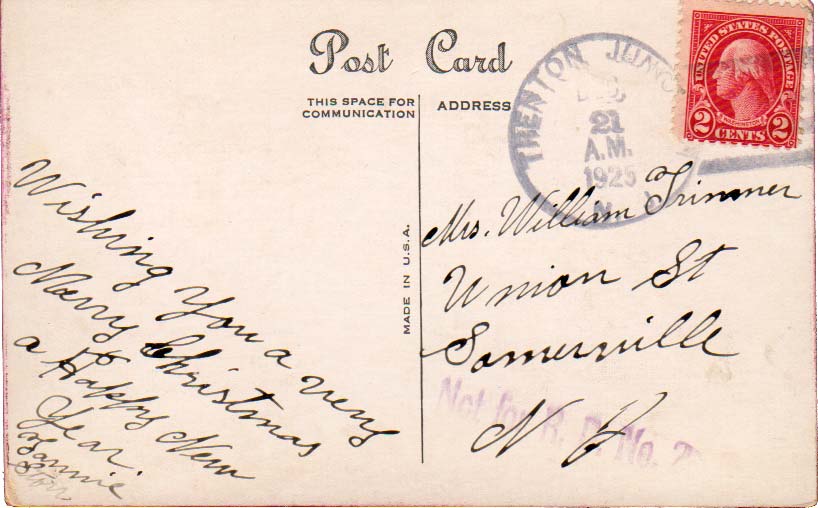 Post Card
THIS SPACE FOR
COMMUNICATION
ADDRESS
MADE IN U.S.A.
TRENTON JUNC
DEC
21
A.M.
1925
N. J.
UNITED STATES POSTAGE
WASHINGTON
2 CENTS 2
Wishing You a very
Merry Christmas
a Happy New
Year.
Fannie
Mrs. William Trimmer
Union St
Somerville
N J
Not for R. D. No. 2